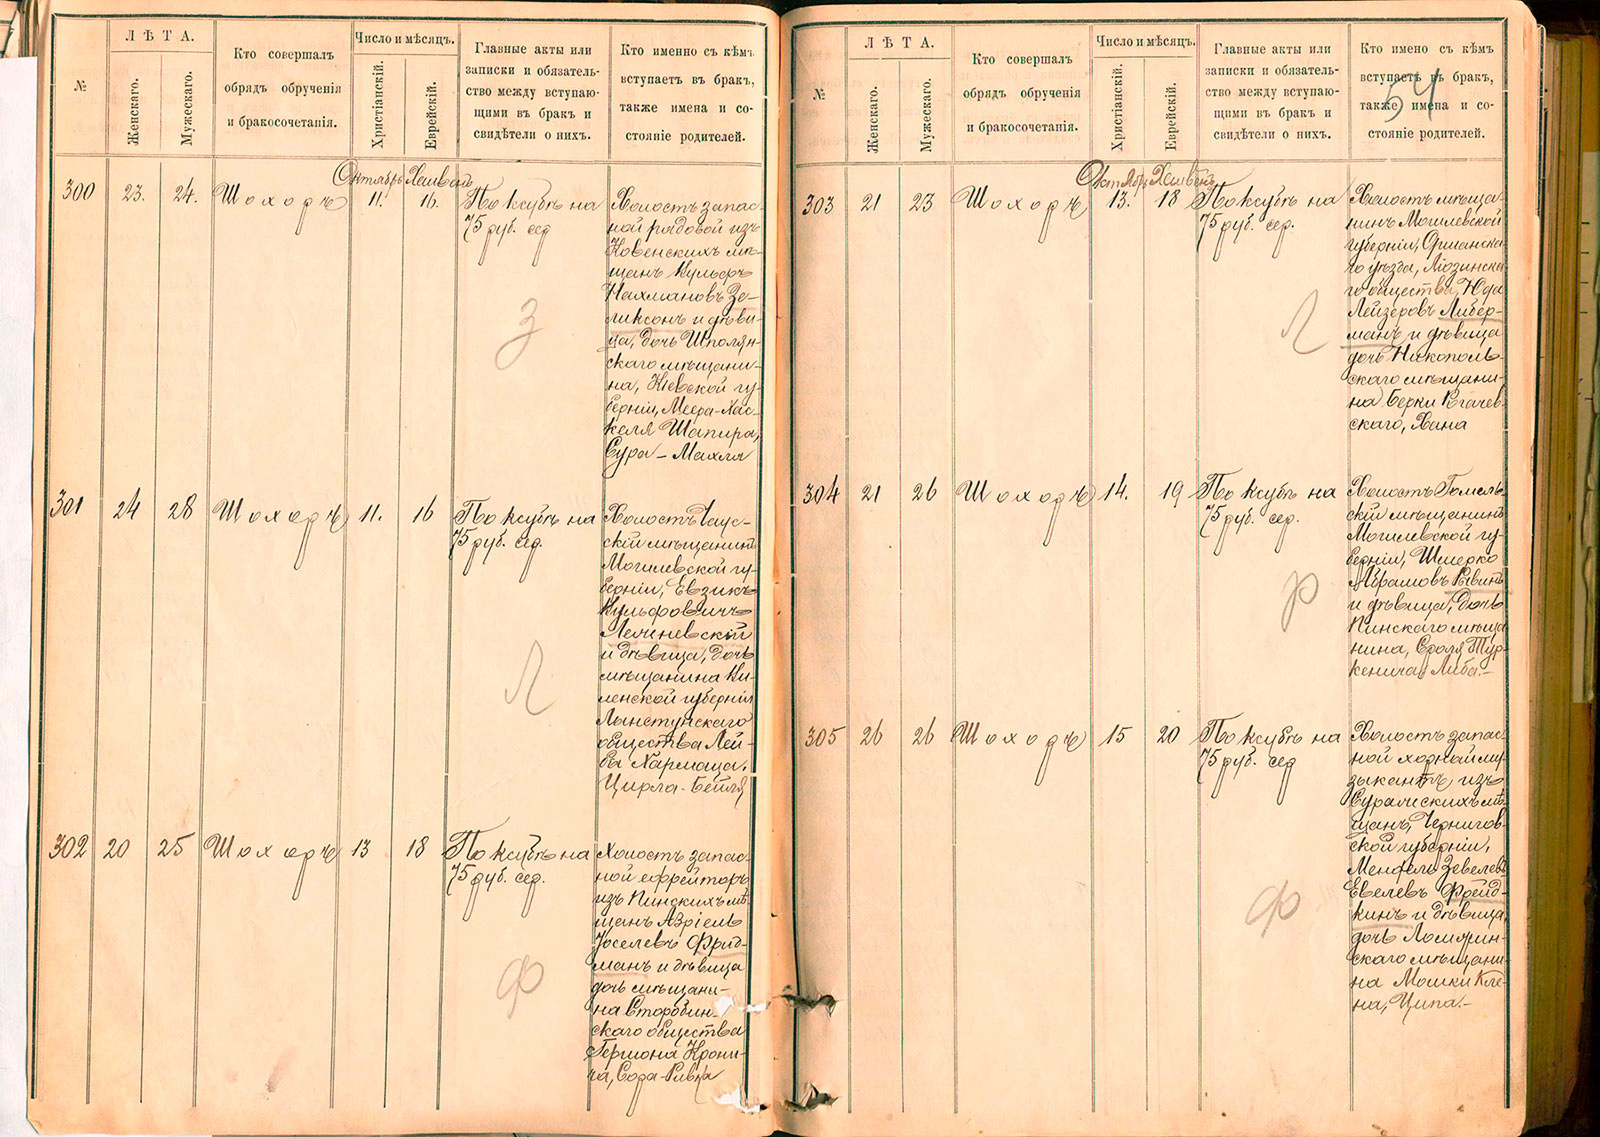 №
ЛѢТА.
Женскаго.
Мужескаго.
Кто совершалъ
обрядъ обрученія
и бракосочетанія.
Число и мѣсяцъ.
Христіанскій.
Еврейскій.
Главные акты или
записки и обязатель-
ство между вступаю-
щими въ бракъ и
свидѣтели о нихъ.
Кто именно съ кѣмъ
вступаетъ въ бракъ,
также имена и со-
стояніе родителей.
Октябрь Хешвенъ
300 23. 24. Шохоръ 11. 16.
По ксубѣ на
75 руб. сер
З
Холостъ запас-
ной рядовой изъ
Ковенскихъ мѣ-
щанъ Вульфъ
Нахмановъ Зе-
ликсонъ и дѣви-
ца, дочь Шполян-
скаго мѣщани-
на, Кіевской гу-
берніи, Меера-Хас-
келя Шапира,
Сура-Махля
301 24 28 Шохоръ 11. 16
По ксубѣ на
75 руб. сер.
Л
Холостъ Чаус-
скій мѣщанинъ
Могилевской гу-
берніи, Евзикъ
Вульфовичъ
и дѣвица, дочь
мѣщанина Ви-
ленской губерніи
Лынтупскаго
общества Лей-
ба Хармаца,
Цирла-Бейля
302 20 25 Шохоръ 13 18
По ксубѣ на
75 руб. сер.
Ф
Холостъ запас-
ной ефрейторъ
изъ Пинскихъ мѣ-
щанъ Азріель
Іоселевъ Фрид-
манъ и дѣвица
дочь мѣщани-
на Старобин-
скаго общества
Гершона Крони-
ча, Сора-Ривка
№
ЛѢТА.
Женскаго.
Мужескаго.
Кто совершалъ
обрядъ обрученія
и бракосочетанія.
Число и мѣсяцъ.
Христіанскій.
Еврейскій.
Главные акты или
записки и обязатель-
ство между вступаю-
щими въ бракъ и
свидѣтели о нихъ.
Кто имено съ кѣмъ
вступаетъ въ бракъ,
также имена и со-
стояніе родителей.
54
Октябрь Хешвенъ
303 21 23 Шохоръ 13. 18
По ксубѣ на
75 руб. сер.
Л
Холостъ мѣща-
нинъ Могилевской
губерніи, Оршанска-
го уѣзда, Ліозинска-
го общества, Юда
Лейзеровъ Либер-
манъ и дѣвица
дочь Никополь-
скаго мѣщани-
на Берки Рогачев-
скаго, Хана
304 21 26 Шохоръ 14. 19
По ксубѣ на
75 руб. сер.
Р
Холостъ Гомель-
скій мѣщанинъ
Могилевской гу-
берніи, Шмерко
Абрамовъ Ривинъ
и дѣвица, дочь
Пинскаго мѣща-
нина, Сроля Тур-
кенича, Либа.-
305 26 26 Шохоръ 15 20
По ксубѣ на
75 руб. сер
Ф
Холостъ запас-
ной му-
зыкантъ изъ
Суражскихъ мѣ-
щанъ, Чернигов-
ской губерніи,
Мендель Зевелевъ
Евелевъ Фрейд-
кинъ и дѣвица
дочь Ломжин-
скаго мѣщани-
на Мошки Кле-
на, Ципа.-